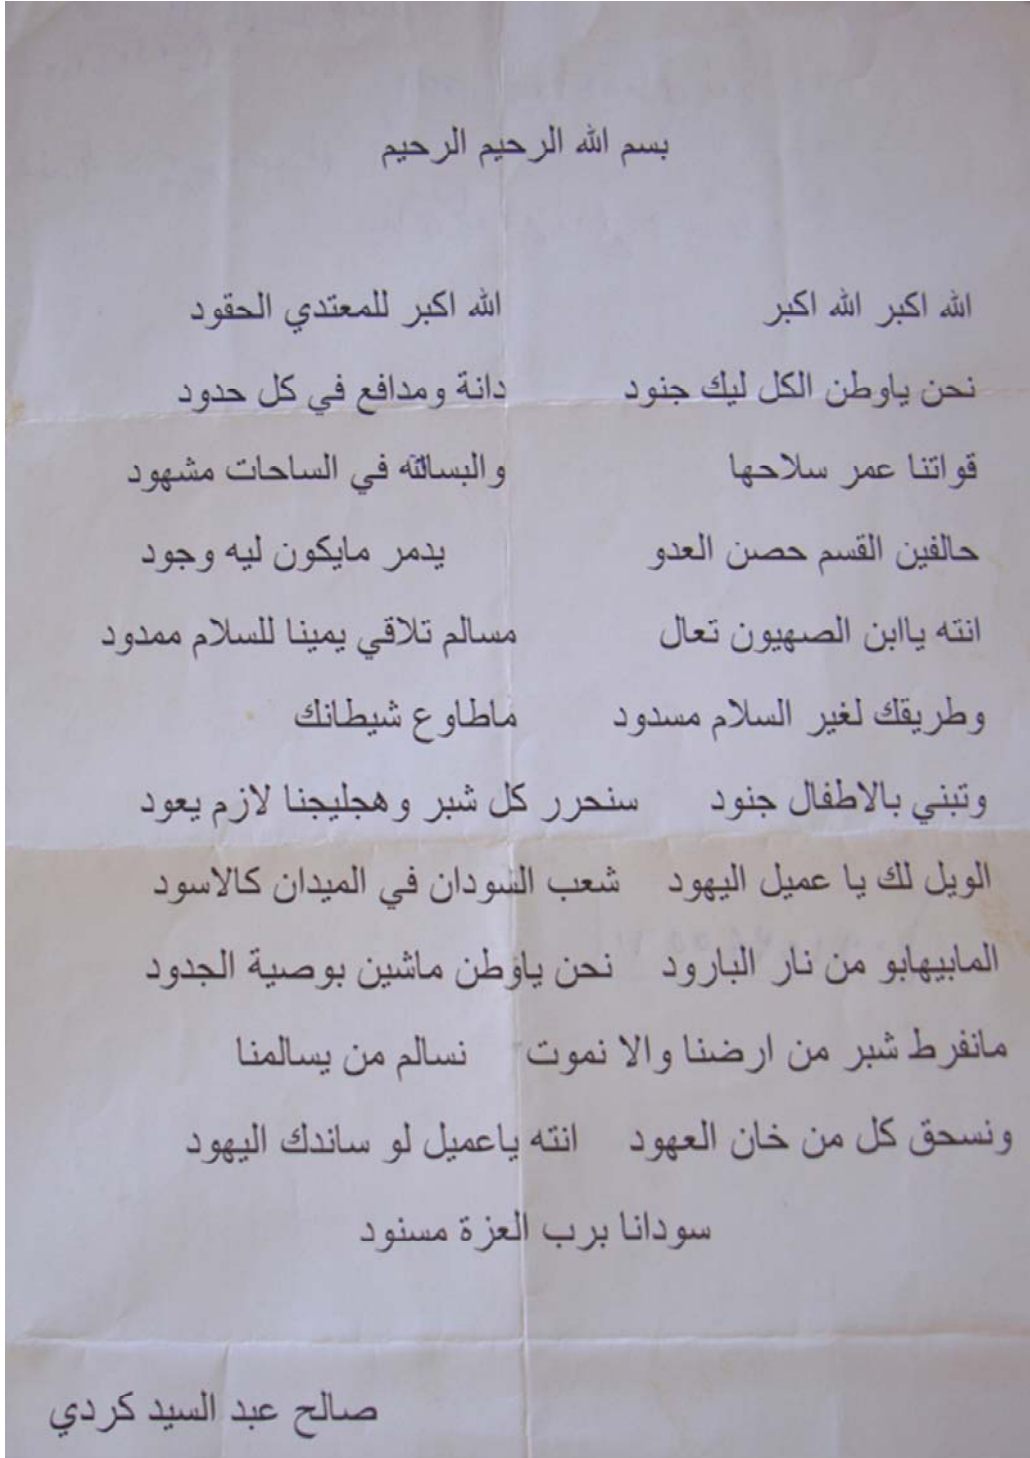 بسم الله الرحيم الرحيم
الله اكبر الله اكبر الله اكبر للمعتدي الحقود
نحن ياوطن الكل ليك جنود دانة ومدافع في كل حدود
قواتنا عمر سلاحها والبسالته في الساحات مشهود
حالفين القسم حصن العدو يدمر مايكون ليه وجود
انته ياابن الصهيون تعال مسالم تلاقي يمينا للسلام ممدود
وطريقك لغير السلام مسدود ماطاوع شيطانك
وتبني بالاطفال جنود سنحرر كل شبر وهجليجنا لازم يعود
الويل لك يا عميل اليهود شعب السودان في الميدان كالاسود
المابيهابو من نار البارود نحن ياوطن ماشين بوصية الجدود
مانفرط شبر من ارضنا والا نموت نسالم من يسالمنا
ونسحق كل من خان العهود انته ياعميل لو ساندك اليهود
سودانا برب العزة مسنود
صالح عبد السيد كردي